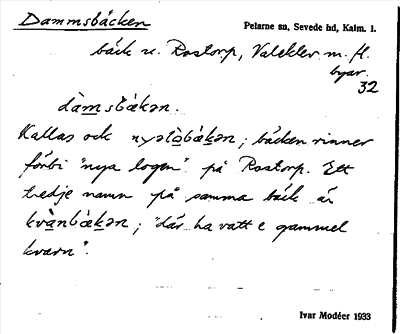 Dammsbäcken
Pelarne sn, Sevede hd, Kalm. l.
bäck u. Rostorp, Valeklev m. fl.
byar.
32
dàmsbækən.
Kallas ock nyəlòbækən; bäcken rinner
förbi "nya logen" på Rostorp. Ett
tredje namn på samma bäck är
kvànbækən; "där ha vatt e gammel
kvarn".
Ivar Modéer 1933